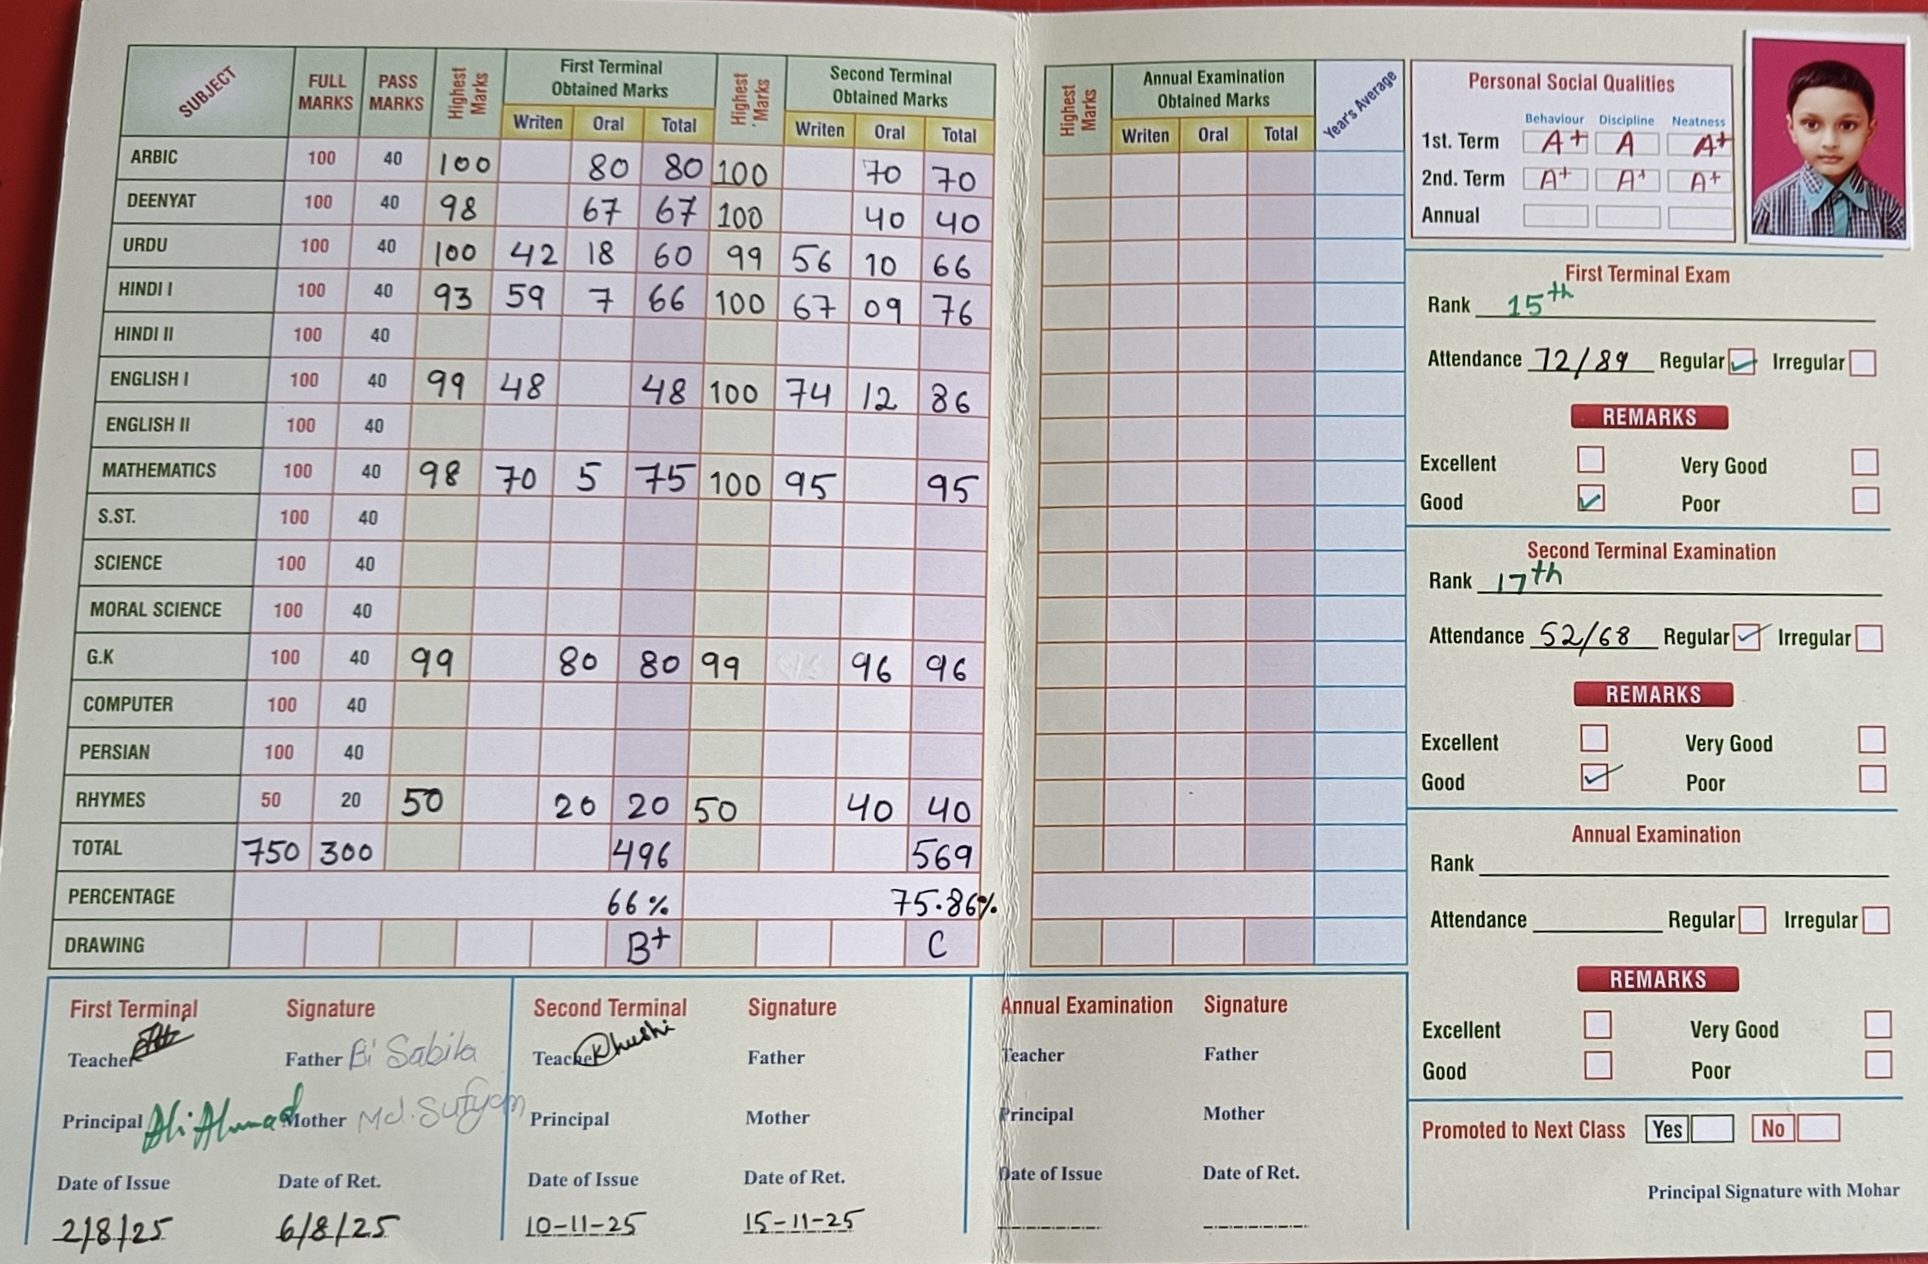 SUBJECT FULL MARKS PASS MARKS Highest Marks First Terminal Obtained Marks Highest Marks Second Terminal Obtained Marks
Writen Oral Total Writen Oral Total
ARBIC 100 40 100 80 80 100 70 70
DEENYAT 100 40 98 67 67 100 40 40
URDU 100 40 100 42 18 60 99 56 10 66
HINDI I 100 40 93 59 7 66 100 67 09 76
HINDI II 100 40
ENGLISH I 100 40 99 48 48 100 74 12 86
ENGLISH II 100 40
MATHEMATICS 100 40 98 70 5 75 100 95 95
S.ST. 100 40
SCIENCE 100 40
MORAL SCIENCE 100 40
G.K 100 40 99 80 80 99 96 96
COMPUTER 100 40
PERSIAN 100 40
RHYMES 50 20 50 20 20 50 40 40
TOTAL 750 300 496 569
PERCENTAGE 66% 75.86%
DRAWING B+ C
First Terminal Signature
Teacher Father Bi Sabila
Principal Ali Ahmad Mother Md. Sufyan
Date of Issue Date of Ret.
2/8/25 6/8/25
Second Terminal Signature
Teacher Khushi Father
Principal Mother
Date of Issue Date of Ret.
10-11-25 15-11-25
Highest Marks Annual Examination Obtained Marks Year's Average
Writen Oral Total
Annual Examination Signature
Teacher Father
Principal Mother
Date of Issue Date of Ret.
Personal Social Qualities
Behaviour Discipline Neatness
1st. Term A+ A A+
2nd. Term A+ A+ A+
Annual
First Terminal Exam
Rank 15th
Attendance 72/89 Regular Irregular
REMARKS
Excellent Very Good
Good Poor
Second Terminal Examination
Rank 17th
Attendance 52/68 Regular Irregular
REMARKS
Excellent Very Good
Good Poor
Annual Examination
Rank
Attendance Regular Irregular
REMARKS
Excellent Very Good
Good Poor
Promoted to Next Class Yes No
Principal Signature with Mohar